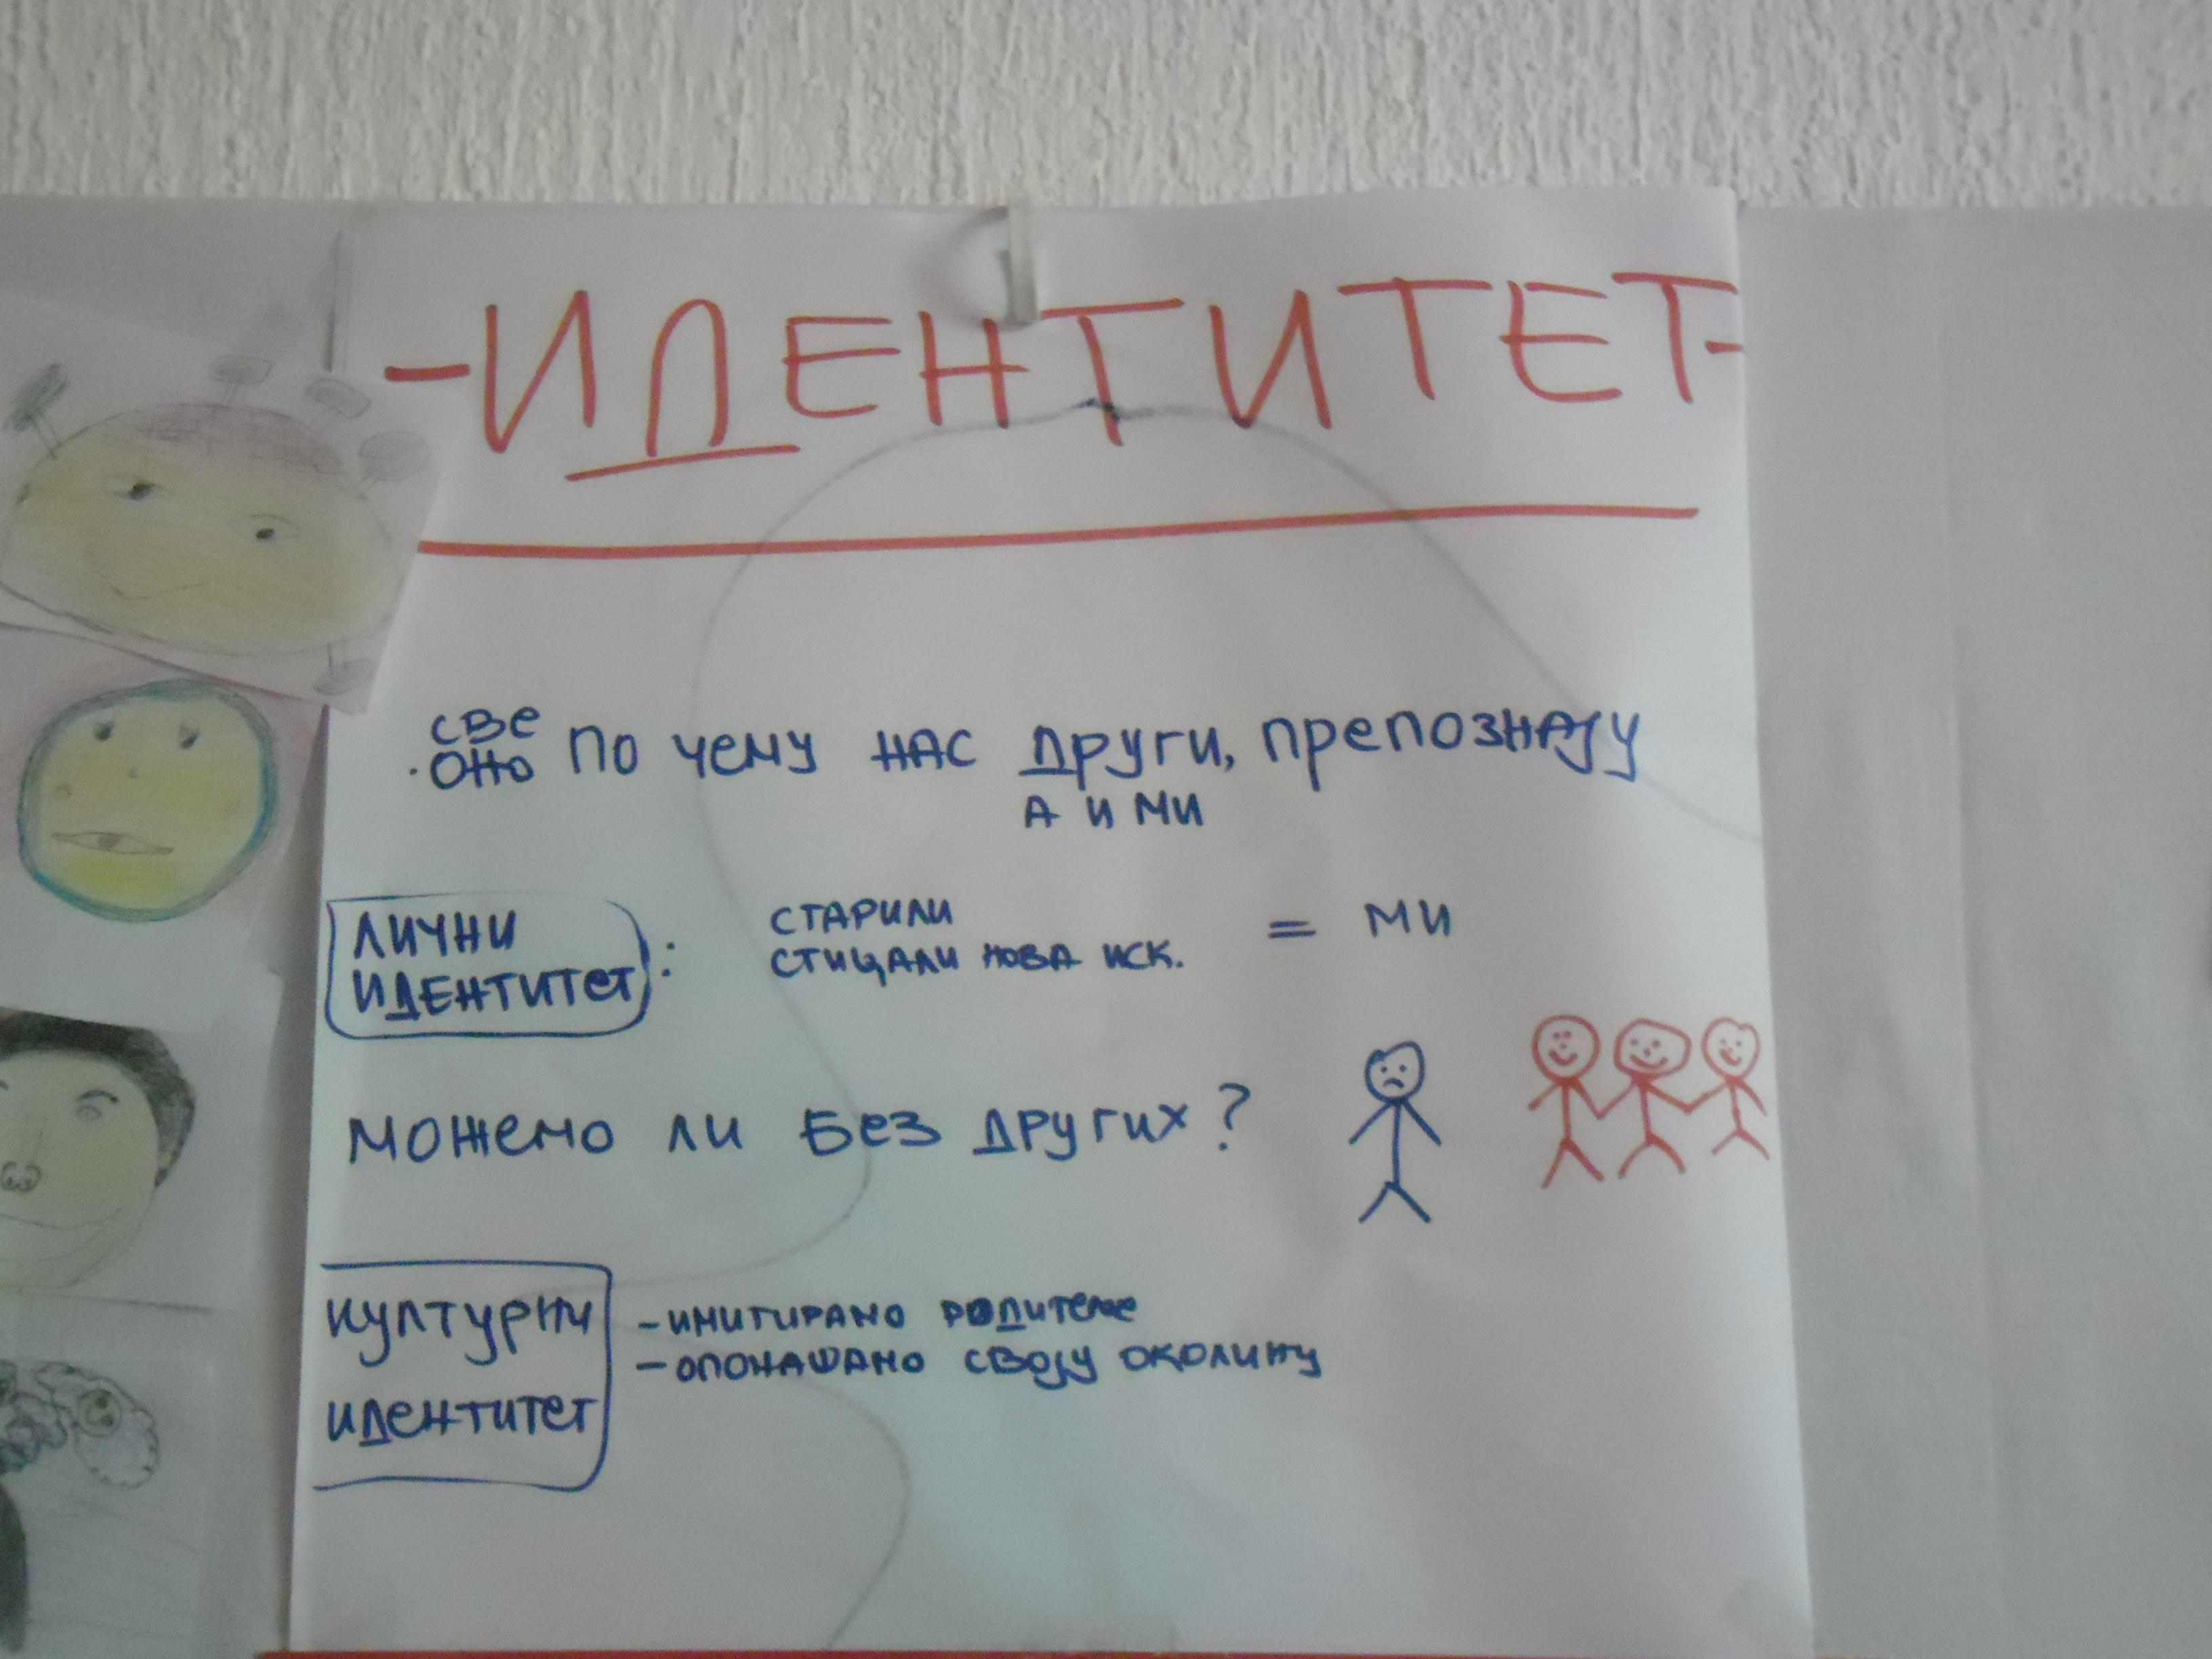 -ИДЕНТИТЕТ-
СВЕ
. ОНО ПО ЧЕМУ НАС ДРУГИ, ПРЕПОЗНАЈУ
А И МИ
ЛИЧНИ
ИДЕНТИТЕТ :
СТАРИЛИ
СТИЦАЛИ НОВА ИСК.
= МИ
МОЖЕМО ЛИ БЕЗ ДРУГИХ?
КУЛТУРНИ
ИДЕНТИТЕТ
-ИМИТИРАМО РОДИТЕЉЕ
-ОПОНАШАМО СВОЈУ ОКОЛИНУ